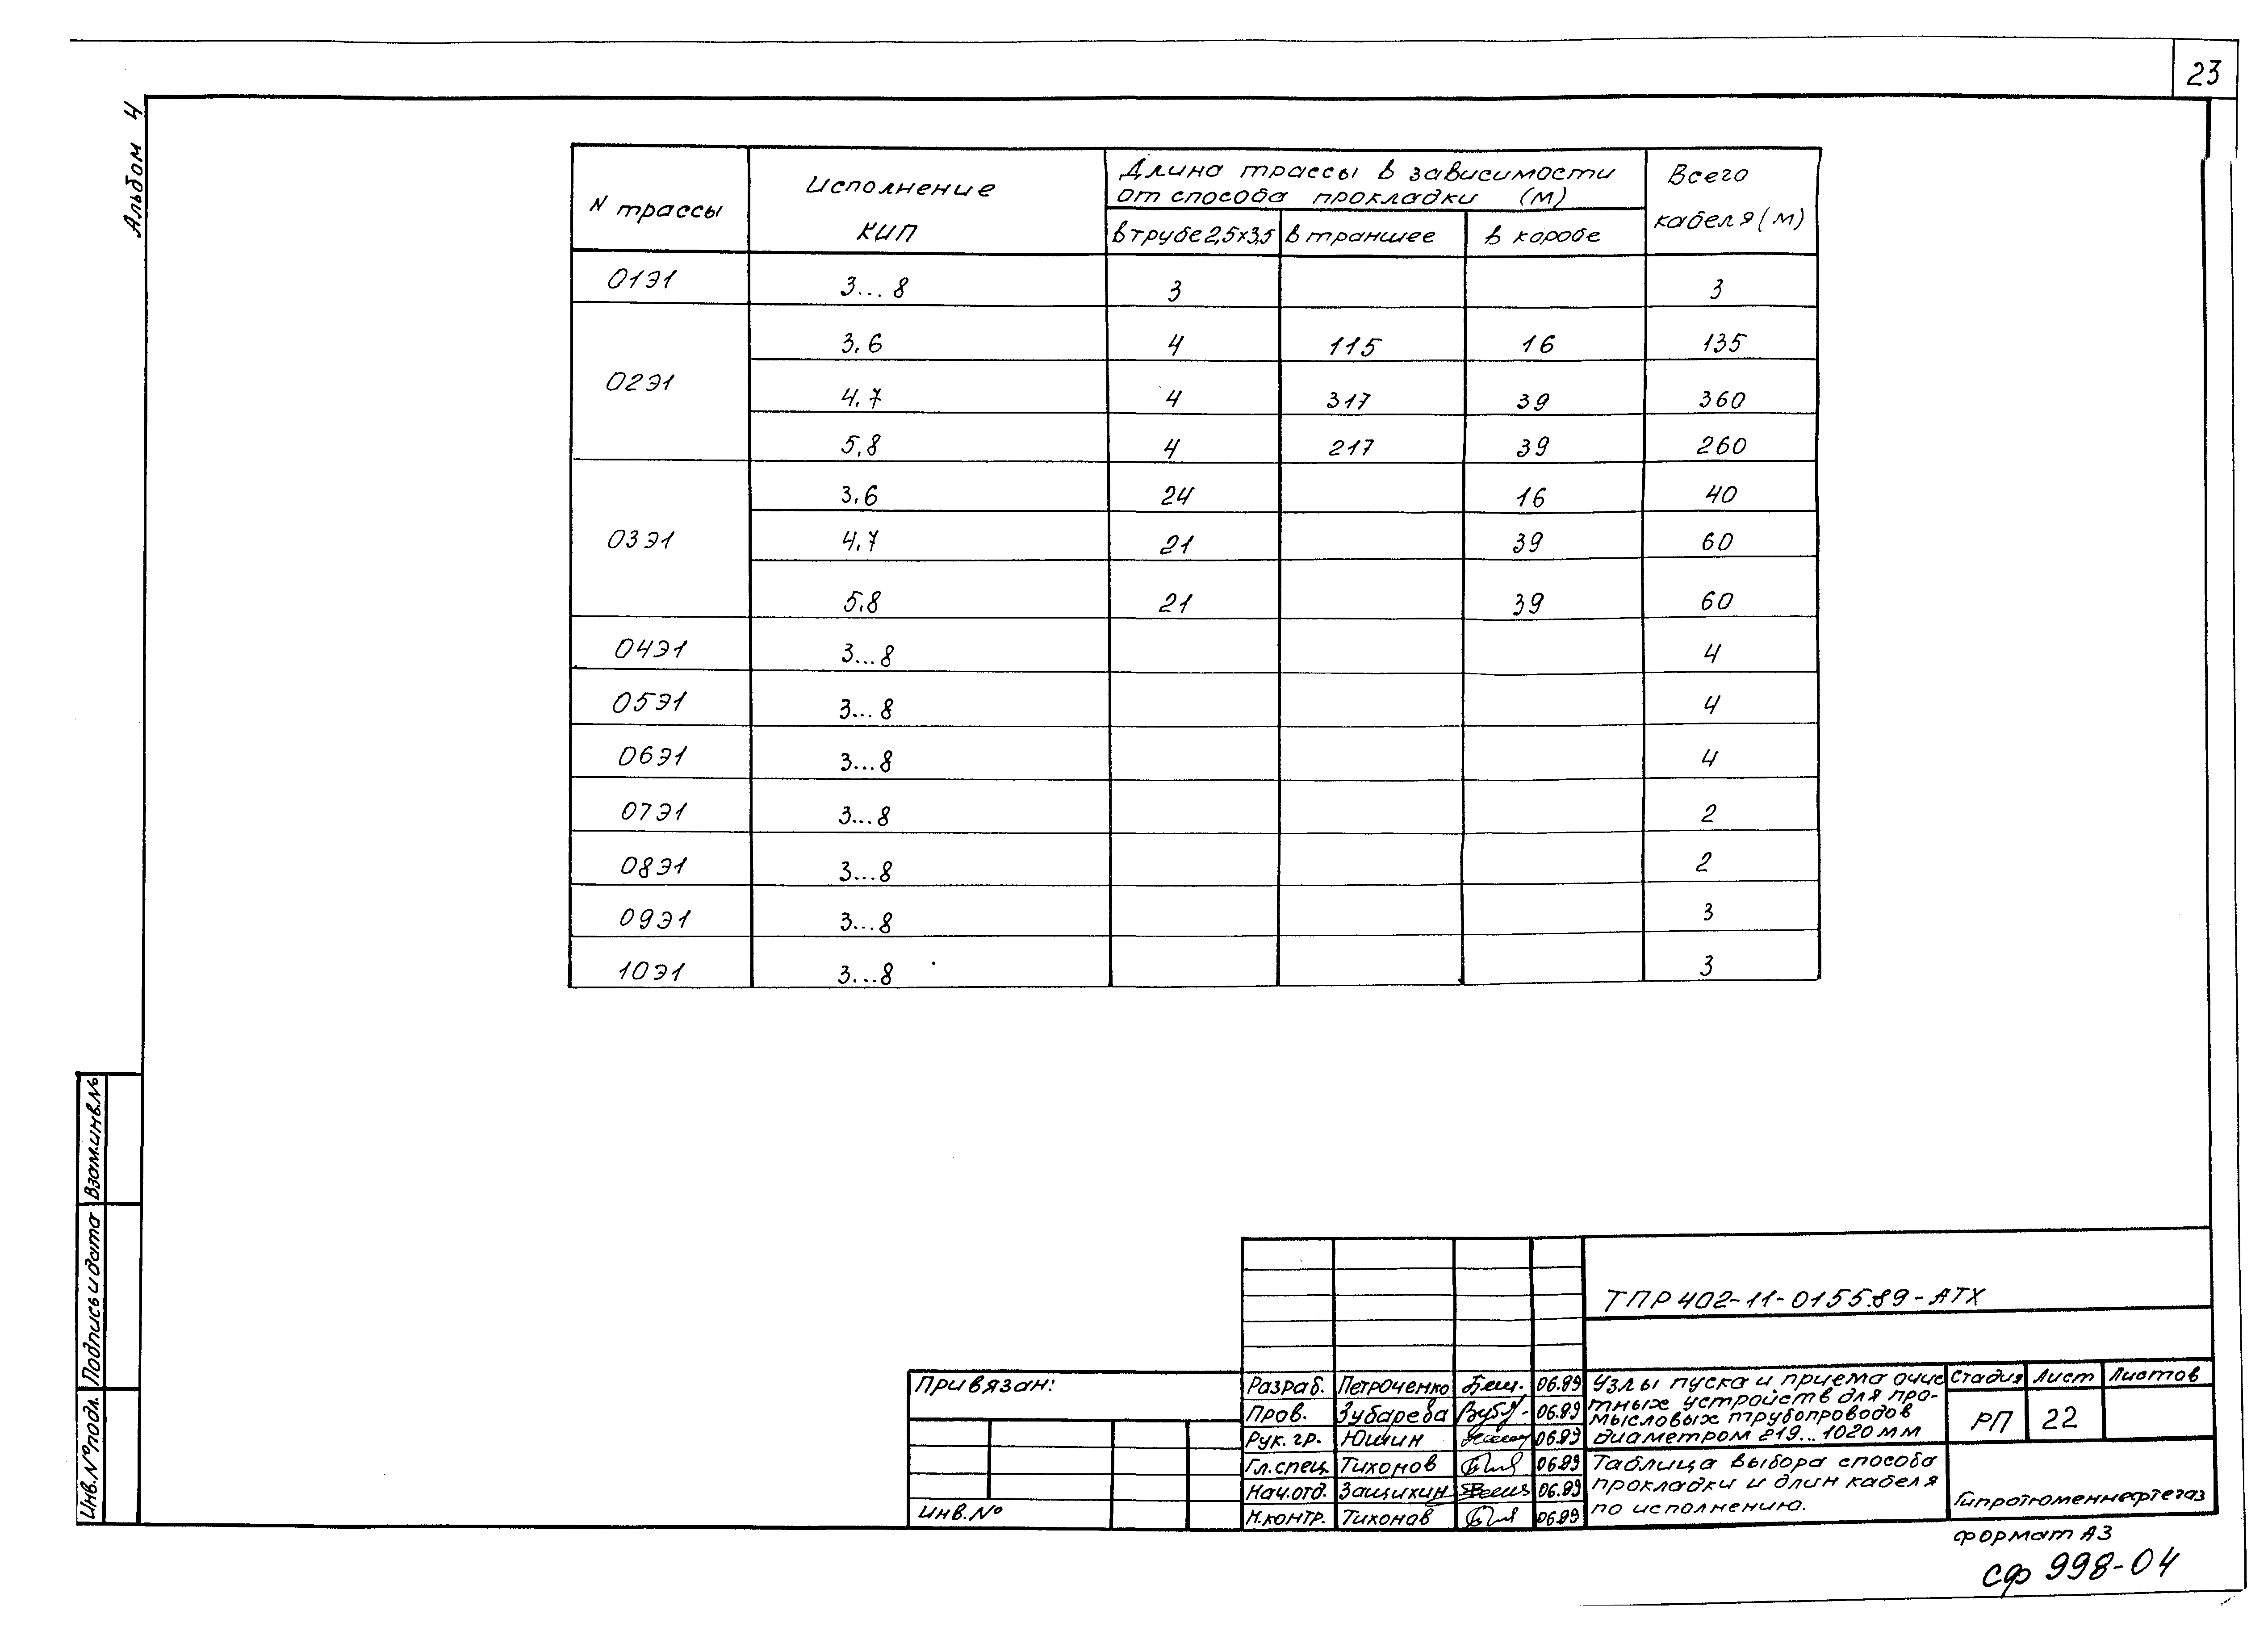 23
Альбом 4
N трассы
Исполнение
КИП
Длина трассы в зависимости
от способа прокладки (м)
Всего
кабеля (м)
в трубе 2,5×3,5 в траншее в коробе
01Э1 3...8 3 3
02Э1
3.6 4 115 16 135
4.7 4 317 39 360
5,8 4 217 39 260
03Э1
3.6 24 16 40
4.7 21 39 60
5.8 21 39 60
04Э1 3...8 4
05Э1 3...8 4
06Э1 3...8 4
07Э1 3...8 2
08Э1 3...8 2
09Э1 3...8 3
10Э1 3...8 3
Взам.инв.№
Подпись и дата
Инв.№ подл.
Привязан:
Инв.№
ТПР 402-11-0155.89-АТХ
Разраб. Петроченко 06.89
Пров. Зубарева 06.89
Рук. гр. Юшин 06.89
Гл.спец. Тихонов 06.89
Нач.отд. Защихин 06.89
Н.контр. Тихонов 06.89
Узлы пуска и приема очис
тных устройств для про-
мысловых трубопроводов
диаметром 219...1020 мм
Стадия Лист Листов
РП 22
Таблица выбора способа
прокладки и длин кабеля
по исполнению.
Гипротюменнефтегаз
формат А3
сф 998-04